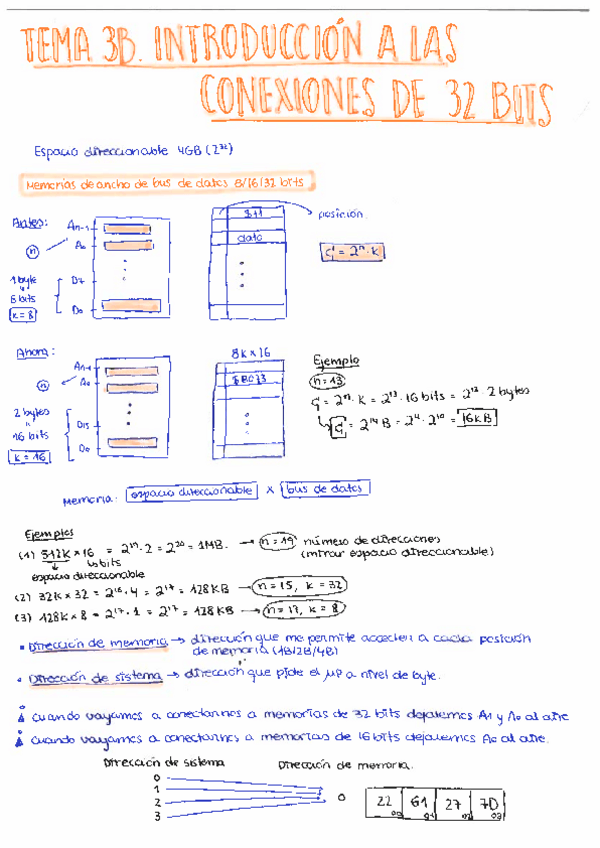 TEMA 3B. INTRODUCCIÓN A LAS
CONEXIONES DE 32 BITS
Espacio direccionable 4GB (2³²)
Memorias de ancho de bus de datos 8/16/32 bits
Antes:
An-1
A0
n
1 byte
8 bits
k = 8
D7
D0
$11
dato
posición
C = 2ⁿ · K
Ahora:
An-1
A0
n
2 bytes
16 bits
k = 16
D15
D0
8K x 16
Ejemplo
n = 13
C = 2ⁿ · K = 2¹³ · 16 bits = 2¹³ · 2 bytes
C = 2¹⁴ B = 2⁴ · 2¹⁰ = 16KB
Memoria: espacio direccionable x bus de datos
Ejemplos
(1) 512K x 16 = 2¹⁹ · 2 = 2²⁰ = 1MB. → n = 19 número de direcciones
(mirar espacio direccionable)
bits
espacio direccionable
(2) 32K x 32 = 2¹⁵ · 4 = 2¹⁷ = 128KB → n = 15, k = 32
(3) 128K x 8 = 2¹⁷ · 1 = 2¹⁷ = 128KB → n = 17, k = 8
• Dirección de memoria → dirección que me permite acceder a cada posición
de memoria (1B/2B/4B)
• Dirección de sistema → dirección que pide el µP a nivel de byte.
cuando vayamos a conectarnos a memorias de 32 bits dejaremos A1 y A0 al aire
cuando vayamos a conectarnos a memorias de 16 bits dejaremos A0 al aire.
Dirección de sistema
Dirección de memoria.
0
1
2
3
0
22 61 27 7D
00 01 02 03